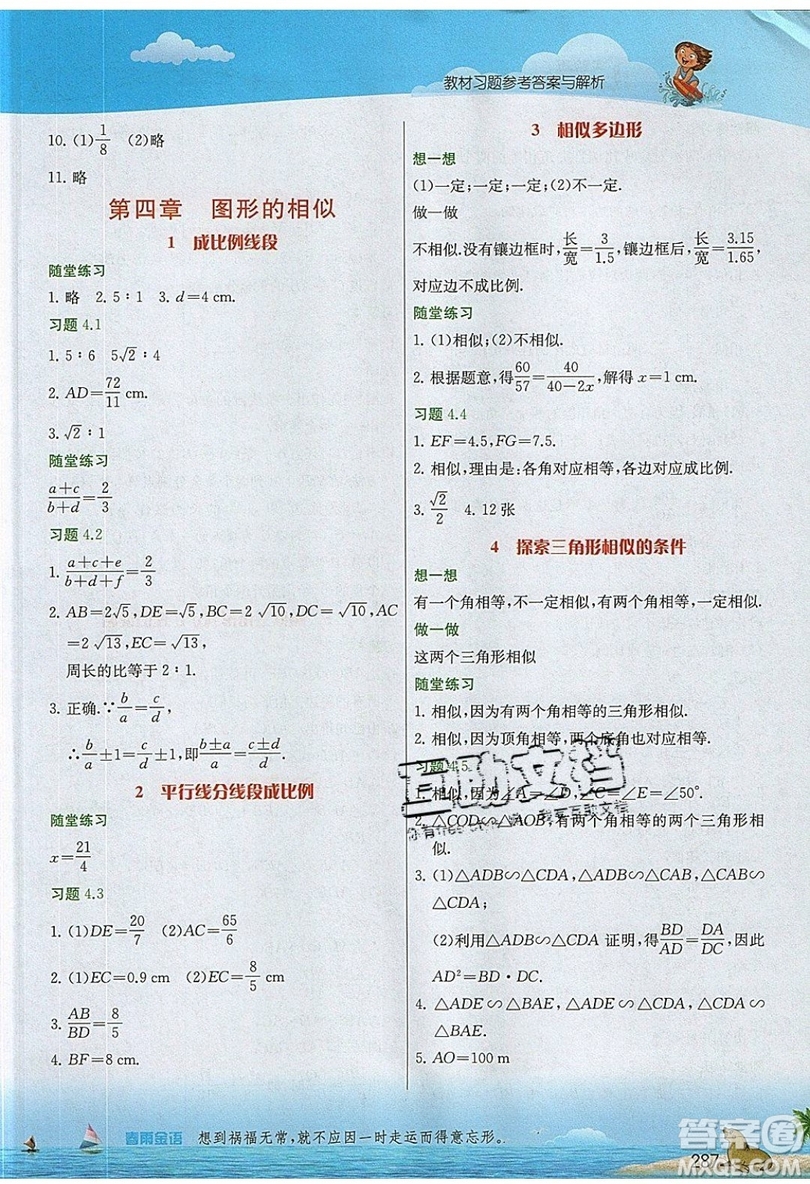 教材习题参考答案与解析
10. (1)1/8 (2)略
11. 略
第四章 图形的相似
1 成比例线段
随堂练习
1. 略 2. 5∶1 3. d=4 cm.
习题 4.1
1. 5∶6 5√2∶4
2. AD=72/11 cm.
3. √2∶1
随堂练习
(a+c)/(b+d)=2/3
习题 4.2
1. (a+c+e)/(b+d+f)=2/3
2. AB=2√5,DE=√5,BC=2√10,DC=√10,AC
=2√13,EC=√13,
周长的比等于 2∶1.
3. 正确.∵b/a=c/d,
∴b/a±1=c/d±1,即(b±a)/a=(c±d)/d.
2 平行线分线段成比例
随堂练习
x=21/4
习题 4.3
1. (1)DE=20/7 (2)AC=65/6
2. (1)EC=0.9 cm (2)EC=8/5 cm
3. AB/BD=8/5
4. BF=8 cm.
3 相似多边形
想一想
(1)一定;一定;一定;(2)不一定.
做一做
不相似.没有镶边框时,长/宽=3/1.5,镶边框后,长/宽=3.15/1.65,
对应边不成比例.
随堂练习
1. (1)相似;(2)不相似.
2. 根据题意,得60/57=40/(40-2x),解得 x=1 cm.
习题 4.4
1. EF=4.5,FG=7.5.
2. 相似,理由是:各角对应相等,各边对应成比例.
3. √2/2 4. 12 张
4 探索三角形相似的条件
想一想
有一个角相等,不一定相似,有两个角相等,一定相似.
做一做
这两个三角形相似
随堂练习
1. 相似,因为有两个角相等的三角形相似.
2. 相似,因为顶角相等,两个底角也对应相等.
习题 4.5
1. 相似,因为∠B=∠C=∠E=∠50°.
2. △COD∽△AOB,有两个角相等的两个三角形相
似.
3. (1)△ADB∽△CDA,△ADB∽△CAB,△CAB∽
△CDA;
(2)利用△ADB∽△CDA 证明,得BD/AD=DA/DC,
AD²=BD·CD.
4. △ADE∽△BAE,△ADE∽△CDA,△CDA∽
△BAE.
5. AO=100 m
互助文档
春雨金语 想到祸福无常,就不应因一时走运而得意忘形。
287
答案圈
MXQE.COM